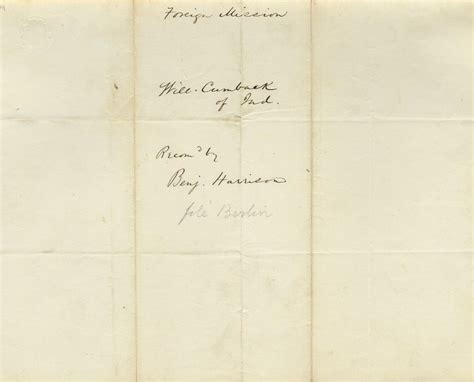 Foreign Mission
Will. Cumback
of Ind.
Recomd by
Benj. Harrison
file Berlin